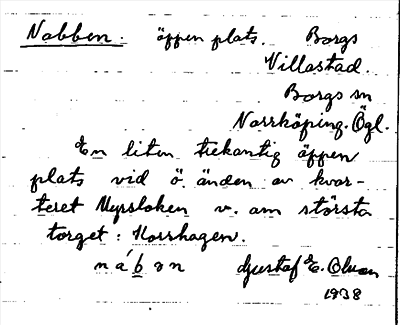 Nabben. öppen plats. Borgs
Villastad.
Borgs sn
Norrköping. Ögl.
En liten trekantig öppen
plats vid ö. änden av kvar-
teret Myrsloken v. om största
torget: Korshagen.
Gustaf E. Olsson
1938